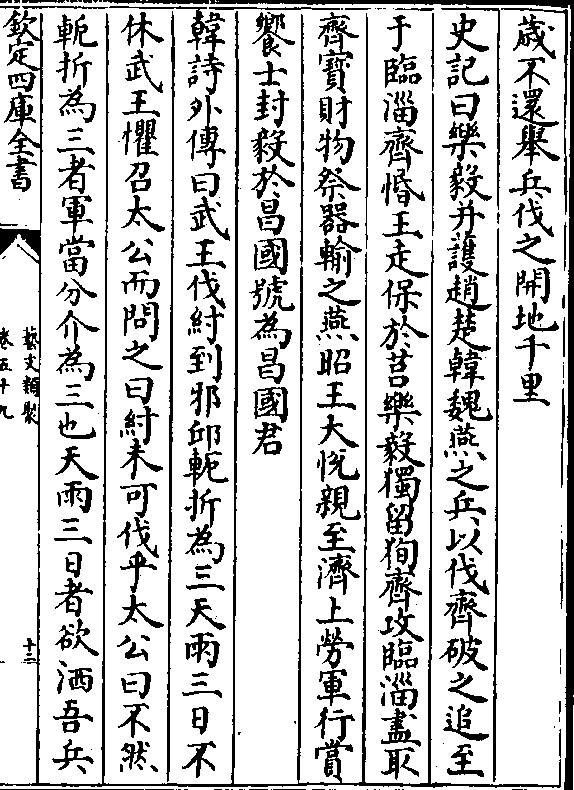 歳不還舉兵伐之開地千里
史記曰樂毅并護趙楚韓魏燕之兵以伐齊破之追至
于臨淄齊湣王走保於莒樂毅獨留狥齊攻臨淄盡取
齊寶財物祭器輸之燕昭王大悅親至濟上勞軍行賞
饗士封毅於昌國號為昌國君
韓詩外傳曰武王伐紂到邢邱軛折為三天雨三日不
休武王懼召太公而問之曰紂未可伐乎太公曰不然
軛折為三者軍當分介為三也天雨三日者欲洒吾兵
欽定四庫全書
藝文類聚
卷五十九
十三